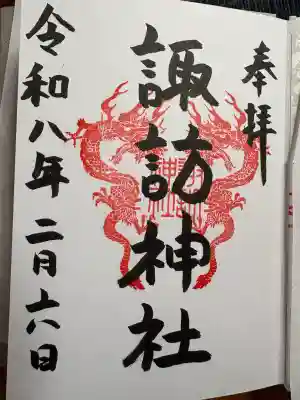 奉拝
諏訪神社
令和八年二月六日